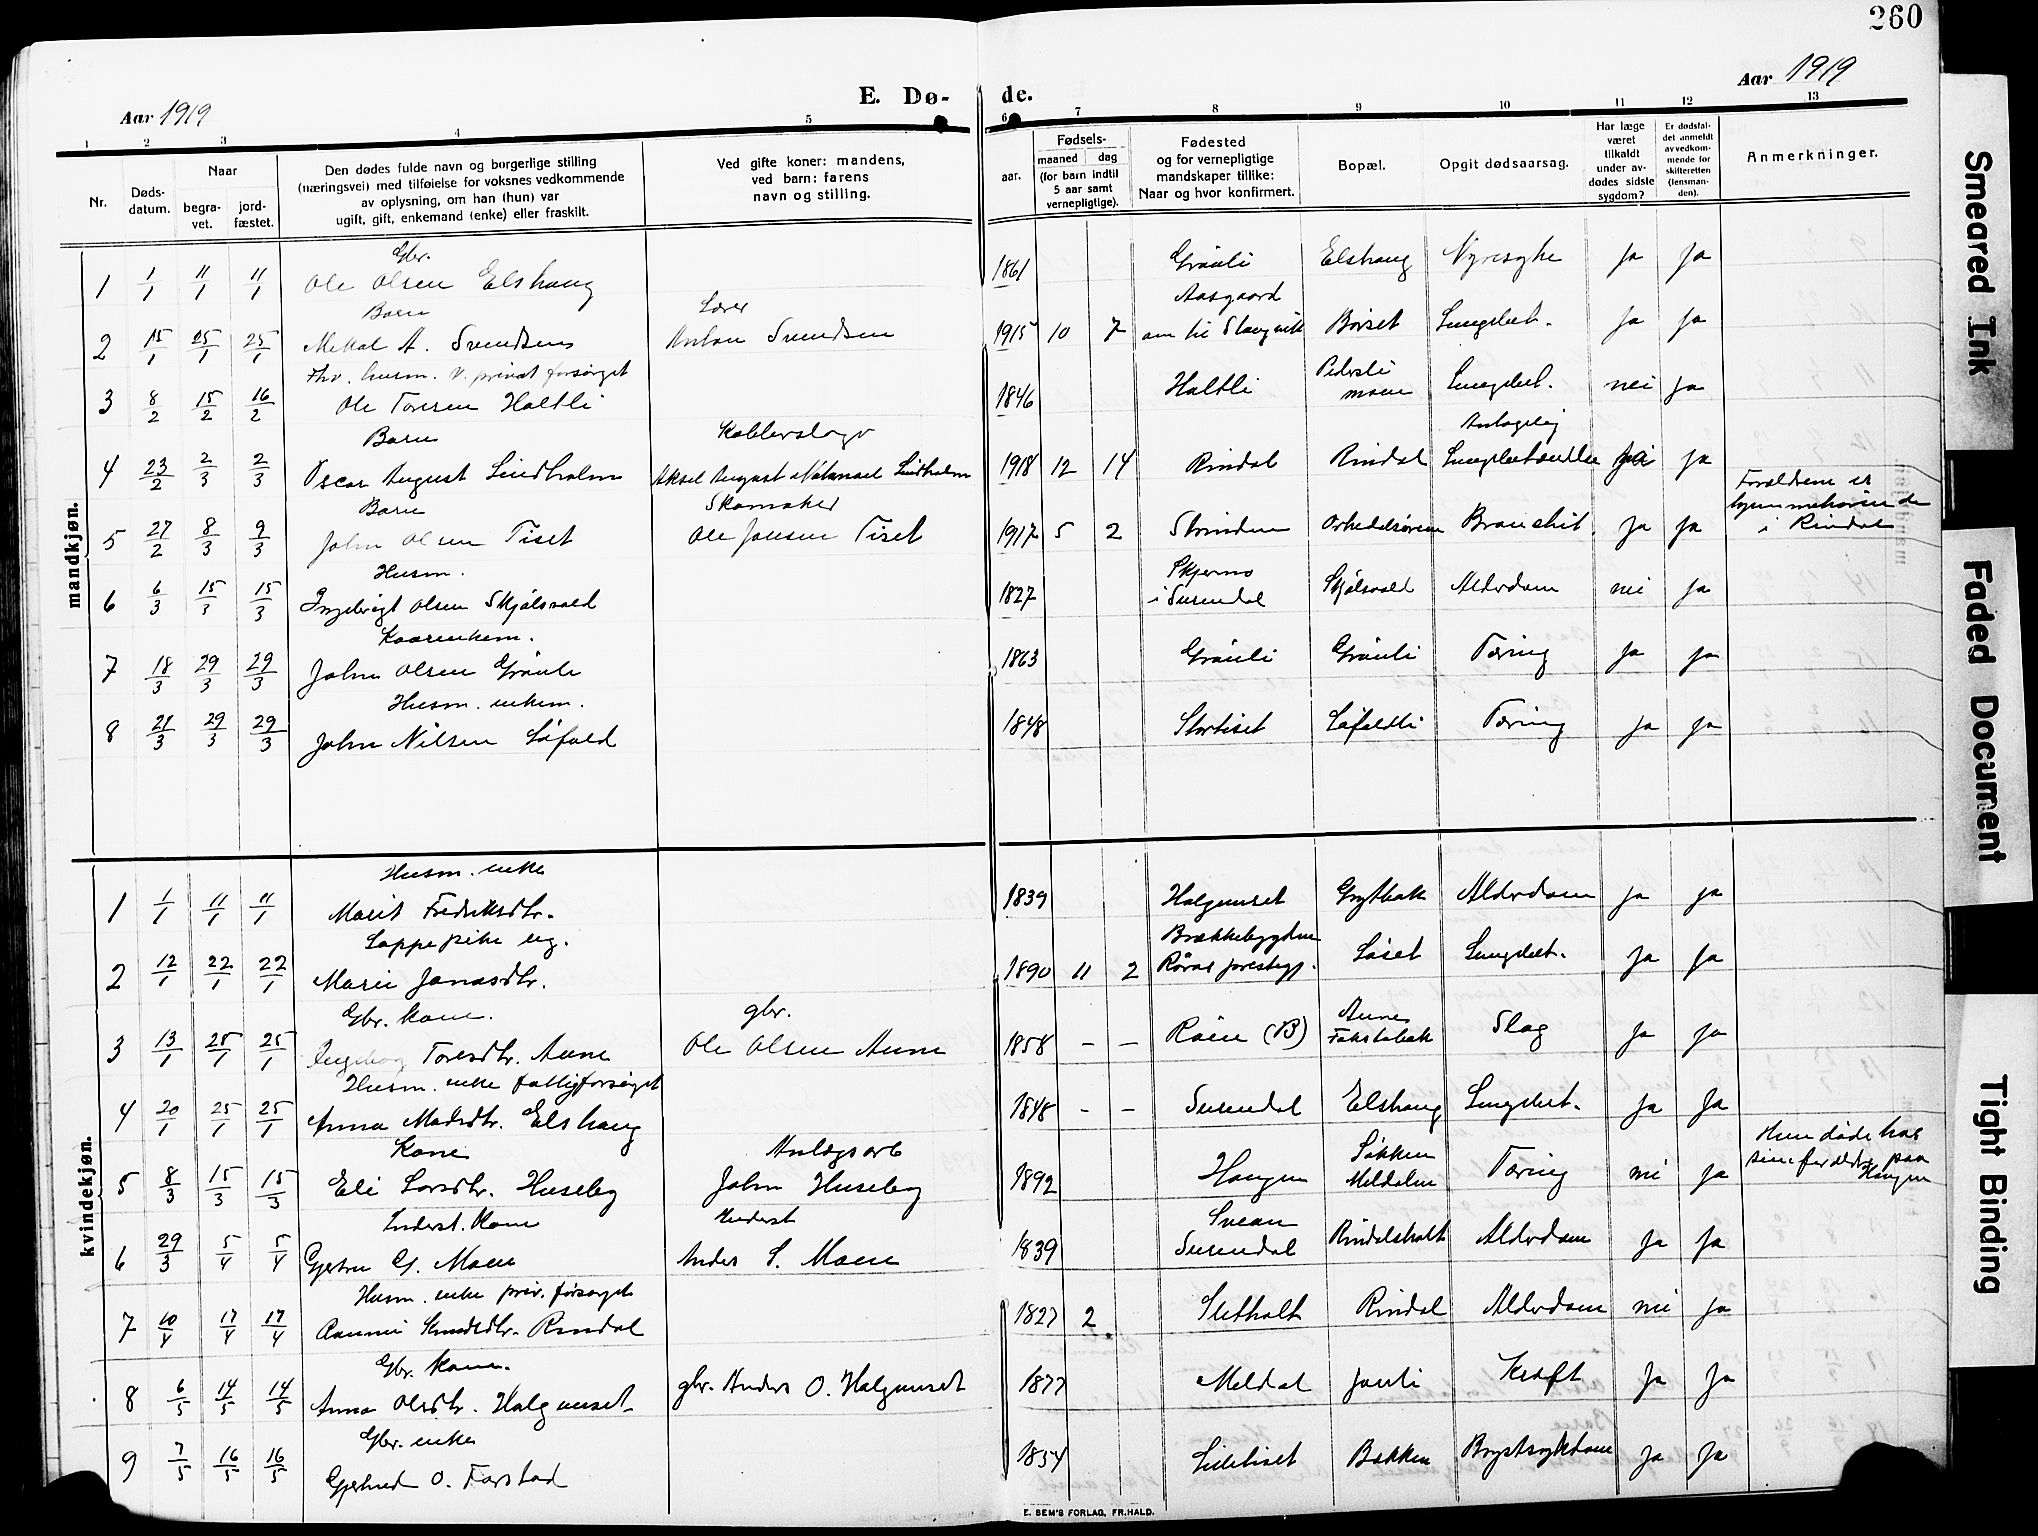 260
Aar 1919
E. Dø-
de.
Aar 1919
1 2 3 4 5 6 7 8 9 10 11 12 13
Nr.
Døds-
datum.
Naar
begra-
vet.
jord-
fæstet.
Den dødes fulde navn og borgerlige stilling
(næringsvei) med tilføielse for voksnes vedkommende
av oplysning, om han (hun) var
ugift, gift, enkemand (enke) eller fraskilt.
Ved gifte koner: mandens,
ved barn: farens
navn og stilling.
Fødsels-
aar.
maaned dag
(for barn indtil
5 aar samt
vernepligtige).
Fødested
og for vernepligtige
mandskaper tillike:
Naar og hvor konfirmert.
Bopæl.
Opgit dødsaarsag.
Har læge
været
tilkaldt
under av-
dødes sidste
sygdom?
Er dødsfal-
det anmeldt
av vedkom-
mende for
skifteretten
(lensman-
den).
Anmerkninger.
mandkjøn.
Gbr.
1 1/1 11/1 11/1 Ole Olsen Elshaug 1861 Grønli Elshaug Nyresyke Ja Ja
Barn Lærer Aasgaard
2 15/1 25/1 25/1 Mekal A. Svendsen Anton Svendsen 1915 10 7 Børset Lungebet. Ja Ja
Fhv. husm. v. privat forsørget
3 8/2 15/2 16/2 Ole Toresen Holtli 1846 Holtli Pedersli moen Lungebet. nei Ja
Barn Kobberslager Antagelig
4 23/2 2/3 2/3 Oscar August Lindholm Aksel August Natanael Lindholm 1918 12 14 Rindal Rindal Ja
Barn Skomaker
5 27/2 8/3 9/3 John Olsen Tiset Ole Jonsen Tiset 1917 5 2 Strinden Orkedalsøren Bronchit. Ja Ja
Forældrene er
hjemmehørende
i Rindal
Husm.
6 6/3 15/3 15/3 Ingebrigt Olsen Skjølsvold 1827 Skjermo i Surendal Skjølsvold Alderdom nei Ja
Kaarenkem.
7 18/3 29/3 29/3 John Olsen Grønli 1863 Grønli Grønli Tæring Ja Ja
Husm. enkem.
8 21/3 29/3 29/3 John Nilsen Løfald 1848 Stortiset Løfaldli Tæring Ja Ja
kvindekjøn.
Husm. enke
1 1/1 11/1 11/1 Marit Fredriksdtr. 1839 Halgunset Grytbak Alderdom Ja Ja
Lappepike ug. Brækkebygden
2 12/1 22/1 22/1 Marie Jonasdtr. 1890 11 2 Røros prestegj. Løset Lungebet. Ja Ja
Gbr. kone. gbr.
3 13/1 25/1 25/1 Ingeborg Toresdtr. Aune Ole Olsen Aune 1858 - - Røen (B) Aunes Slag Ja Ja
Husm. enke fattigforsørget
4 20/1 25/1 25/1 Anna Madsdtr. Elshaug 1848 - - Surendal Elshaug Lungebet. Ja Ja
Kone Anlægsarb
5 8/3 15/3 15/3 Eli Larsdtr. Huseby John Huseby 1892 Haugen Løkken Meldalen Tæring nei Ja
Hun døde hos
sine forældre paa
Haugen
Inderst. kone Inderst
6 29/3 5/4 5/4 Gjertru G. Moen Anders S. Moen 1839 Svean Surendal Rindalsholt Alderdom Ja Ja
Husm. enke priv. forsørget
7 10/4 17/4 17/4 Rannei Knudsdtr. Rindal 1827 2 Sletholt Rindal Alderdom nei Ja
Gbr. kone.
8 6/5 14/5 14/5 Anna Olsdtr. Halgunset gbr. Anders O. Halgunset 1877 Meldal Jønli Kræft Ja Ja
Gbr. enke
9 7/5 16/5 16/5 Gjertrud O. Farstad 1834 Litletiset Bakken Brystsygdom Ja Ja
E. SEM'S FORLAG, FR.HALD.
Smeared Ink
Faded Document
Tight Binding